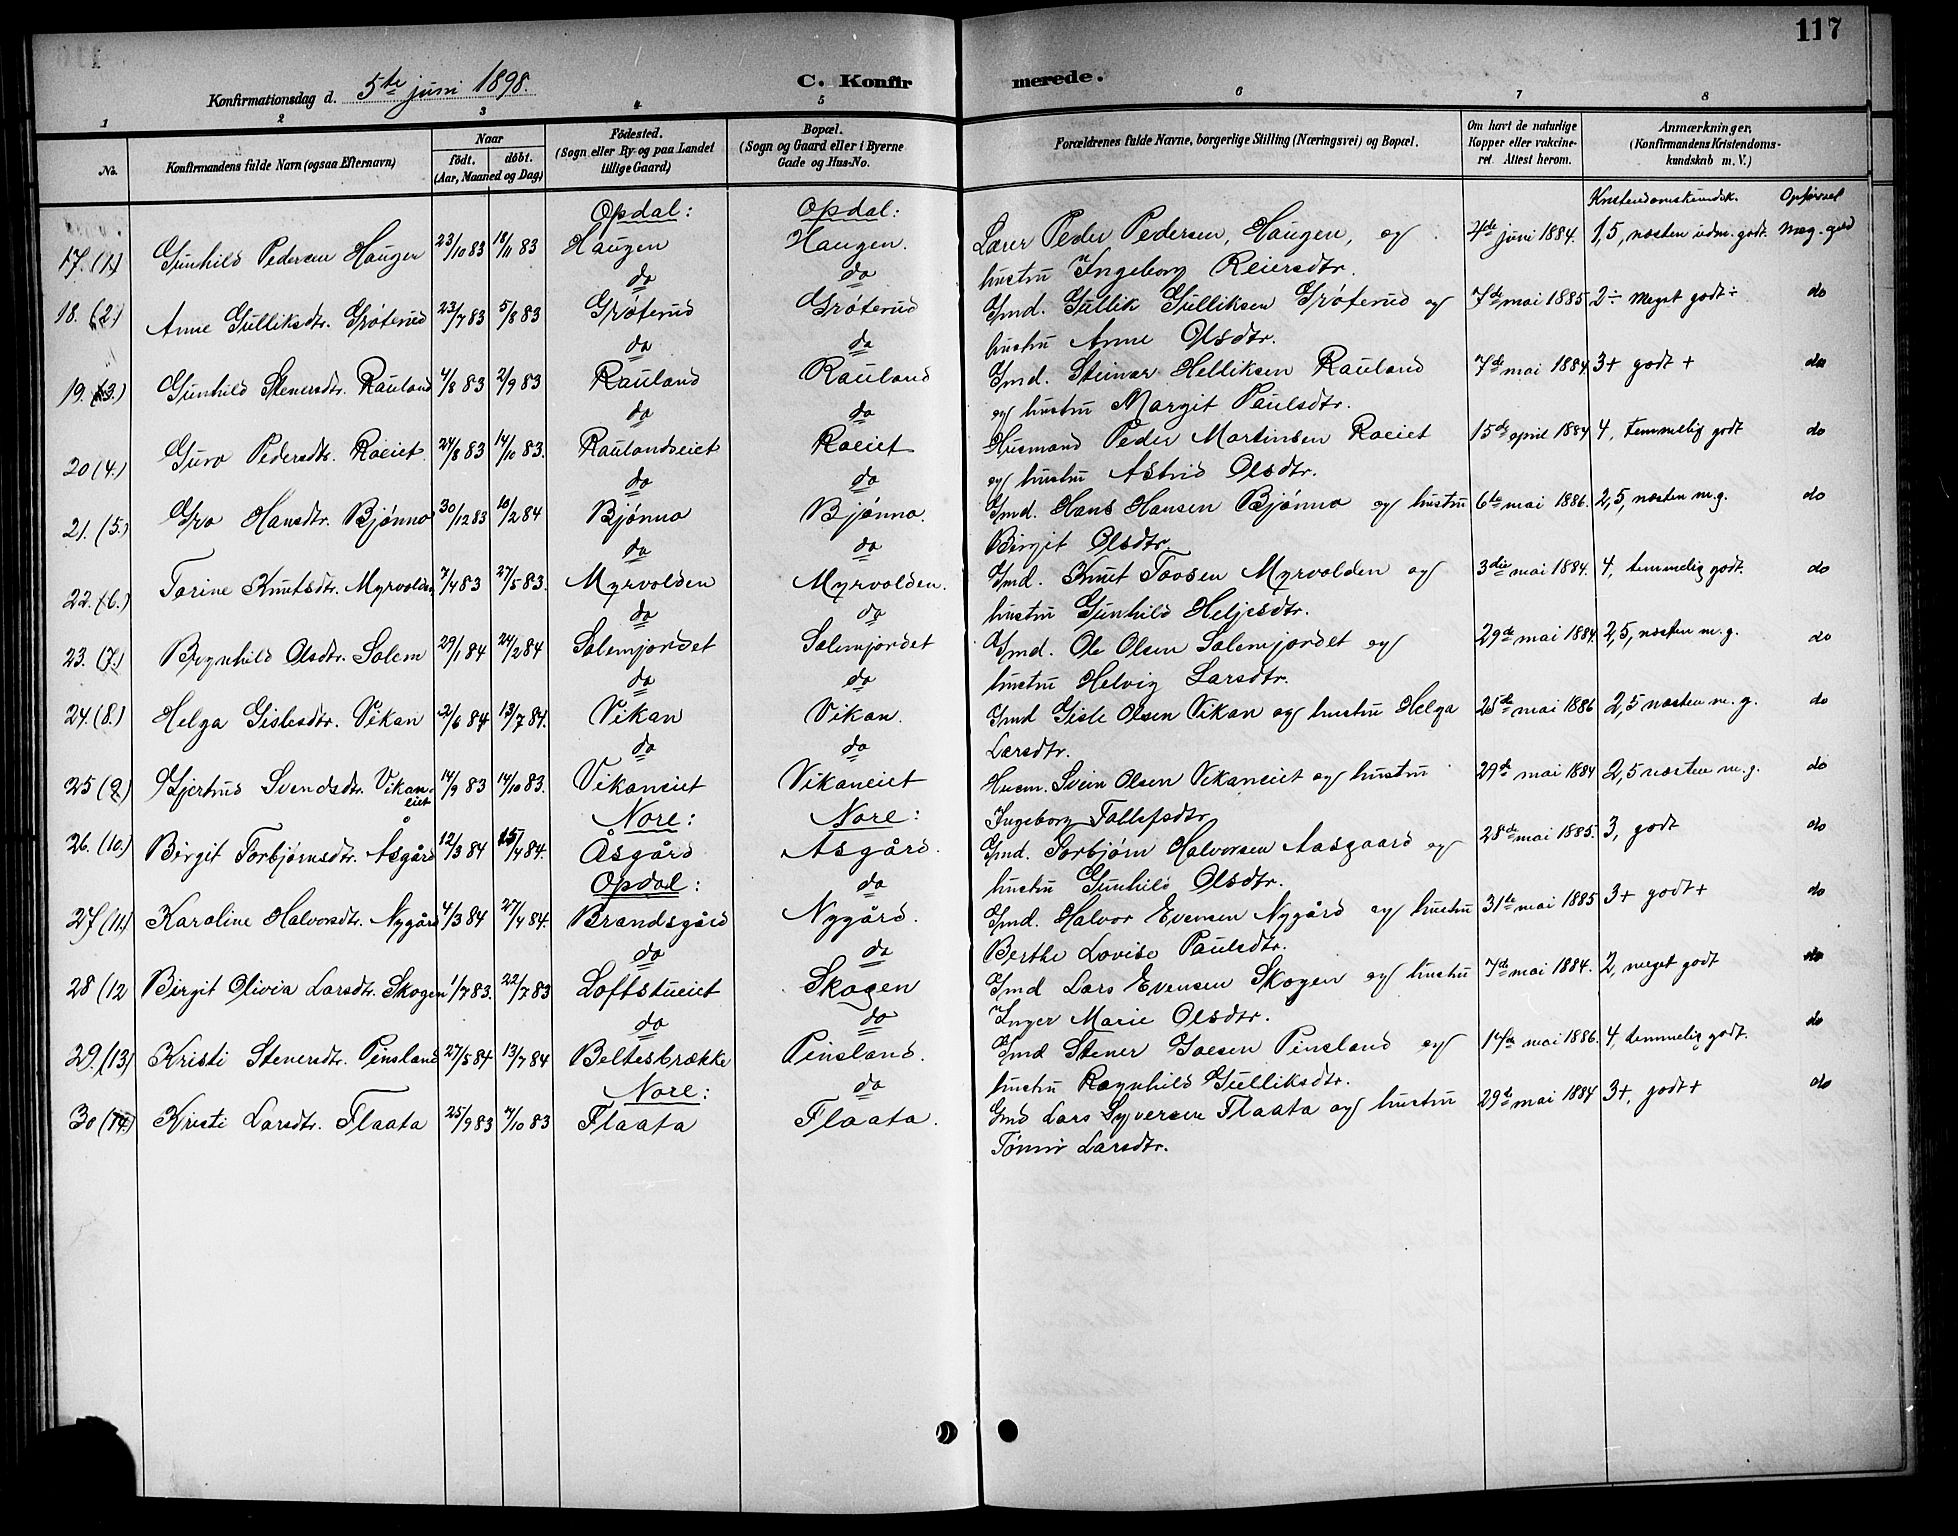 117
Konfirmationsdag d. 5te juni 1898.
C. Konfirmerede.
1 2 3 4 5 6 7 8
No.
Konfirmandens fulde Navn (ogsaa Efternavn)
Naar
født, døbt.
(Aar, Maaned og Dag)
Fødested.
(Sogn eller By og paa Landet
tillige Gaard)
Bopæl.
(Sogn og Gaard eller i Byerne
Gade og Hus-No.
Forældrenes fulde Navne, borgerlige Stilling (Næringsvei) og Bopæl.
Om havt de naturlige
Kopper eller vakcine-
ret. Attest herom.
Anmærkninger,
(Konfirmandens Kristendoms-
kundskab m. V.)
Kristendomskundsk. Opførsel
Opdal: Opdal:
17. (1) Gunhild Pedersen Haugen 23/10 83 18/11 83 Haugen Haugen. Lærer Peder Pedersen, Haugen, og 4de juni 1884. 1,5, næsten udm. godt. Meg. god
do do hustru Ingeborg Reiersdtr.
18. (2.) Anne Gulliksdtr. Grøterud 23/7 83 5/8 83 Grøterud Grøterud Gmd. Gullik Gulliksen Grøterud og 7de mai 1885 2÷ meget godt÷ do
do do hustru Anne Olsdtr.
19. (3.) Gunhild Stenersdtr. Rauland 4/8 83 2/9 83 Rauland Rauland Gmd. Steinar Helliksen Rauland 7de mai 1884 3+ godt + do
do do og hustru Margit Paulsdtr.
20 (4.) Guro Pedersdtr. Roeiet. 24/8 83 14/10 83. Raulandseiet Roeiet Husmand Peder Martinsen Roeiet 15de april 1884 4, temmelig godt do
do do og hustru Astrid Olsdtr.
21. (5.) Gro Hansdtr. Bjønno 30/12 83 10/2 84 Bjønno Bjønno. Gmd. Hans Hansen Bjønno og hustru 6te mai 1886. 2,5, næsten m.g. do
do do Birgit Olsdtr.
22. (6.) Torine Knutsdtr. Myrvolden 7/4 83 27/5 83. Myrvolden Myrvolden. Gmd. Knut Tovsen Myrvolden og 3die mai 1884. 4, temmelig godt. do
do do hustru Gunhild Heljesdtr.
23. (7.) Brynhild Olsdtr. Solem 29/1 84 24/2 84 Solemjordet Solemjordet Gmd. Ole Olsen Solemjordet og 29de mai 1884. 2,5, næsten m.g. do
do do hustru Helvig Larsdtr.
24. (8.) Helga Gislesdtr. Vikan 21/6 84 13/7 84. Vikan Vikan. Gmd Gisle Olsen Vikan og hustru Helga 25de mai 1886 2,5 næsten m.g. do
do do Larsdtr.
25 (9) Gjertrud Svendsdtr. Vikan-
eiet 14/9 83 14/10 83. Vikaneiet Vikaneiet Husm. Svein Olsen Vikaneiet og hustru 29de mai 1884 2,5 næsten m.g. do
Nore: Nore: Ingeborg Tollefsdtr
26. (10.) Birgit Torbjørnsdtr. Åsgård 12/3 84 15/4 84. Åsgård Åsgård. Gmd. Torbjørn Halvorsen Aasgaard og 28de mai 1885. 3, godt do
Opdal: do hustru Gunhild Olsdtr.
27 (11.) Karoline Halvorsdtr. Nygård 4/3 84 27/4 84. Brandsgård Nygård. Gmd. Halvor Evensen Nygård og hustru 31te mai 1885 3+ godt+ do
do do Berthe Lovise Paulsdtr.
28 (12 Birgit Olivia Larsdtr. Skogen 1/7 83. 22/7 83 Loftstueiet Skogen Gmd Lars Evensen Skogen og hustru 7de mai 1884. 2, meget godt do
do do Inger Marie Olsdtr.
29. (13) Kristi Stenersdtr. Pinsland 27/5 84 13/7 84 Beltesbrække Pinsland. Gmd Stener Goesen Pinsland og 14de mai 1886. 4, temmelig godt. do
Nore: do hustru Ragnhild Gulliksdtr.
30 (14) Kristi Larsdtr. Flaata 25/9 83 7/10 83 Flaata Flaata. Gmd Lars Syversen Flaata og hustru 29de mai 1884 3+, godt+ do
Larsdtr.